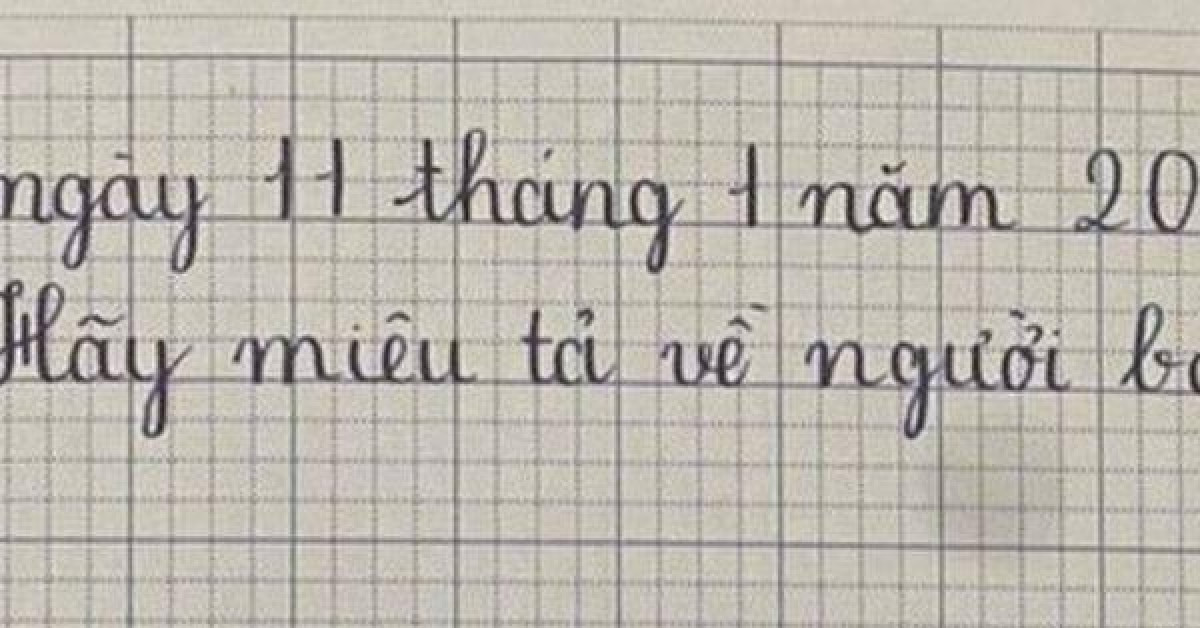 ngày 11 tháng 1 năm 20
Hãy miêu tả về người